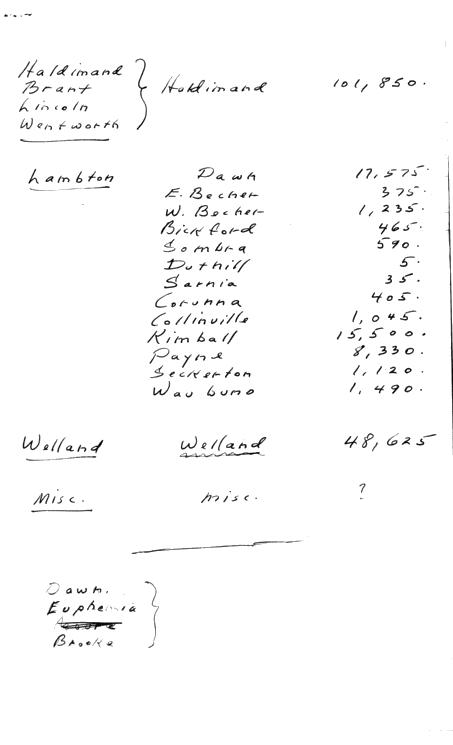 Haldimand
Brant
Lincoln
Wentworth
Holdimand 101,850.
Lambton Dawn 17,575.
E. Becher 375.
W. Becher 1,235.
Bickford 465.
Sombra 590.
Duthill 5.
Sarnia 35.
Corunna 405.
Collinville 1,045.
Kimball 15,500.
Payne 8,330.
Seckerton 1,120.
Waubuno 1,490.
Welland Welland 48,625
Misc. misc. ?
Dawn.
Euphemia
Brooke